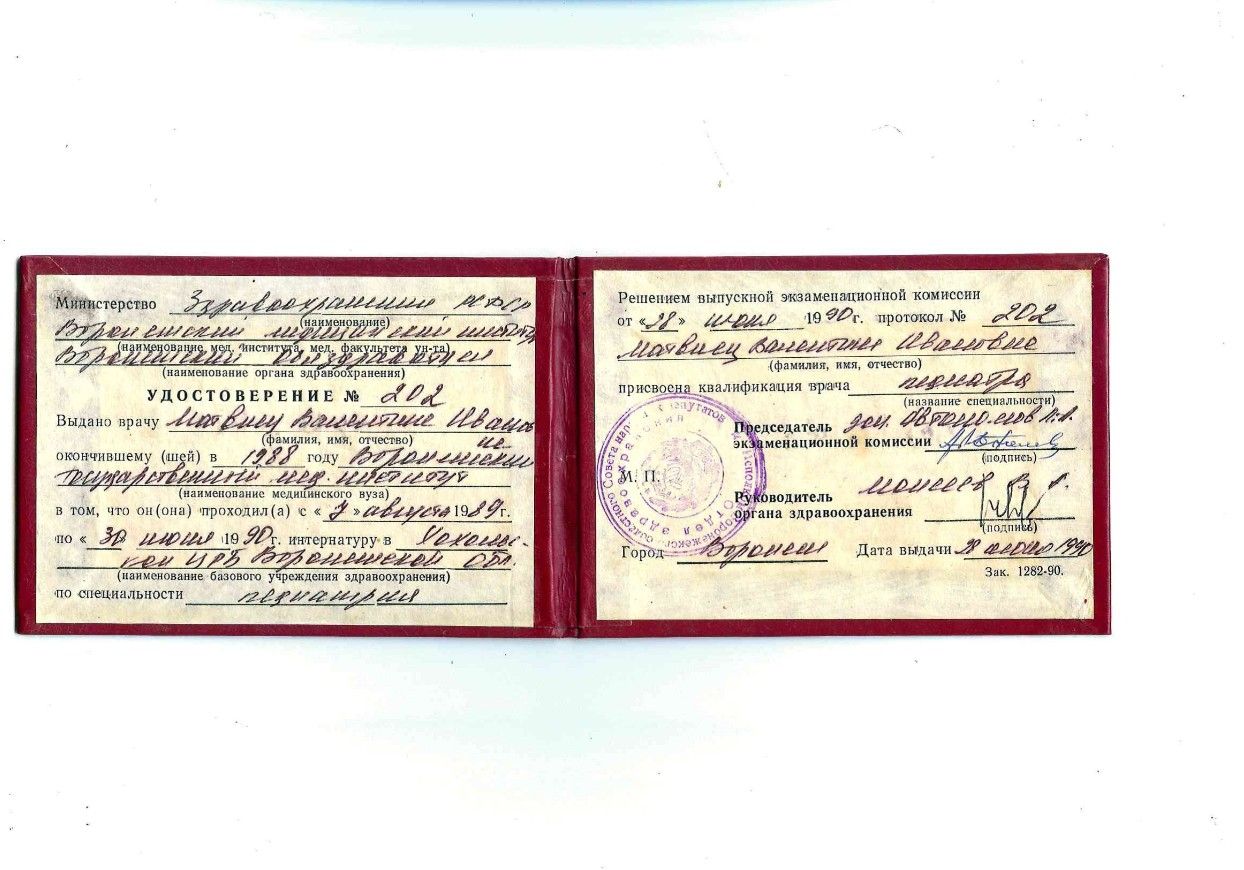 Министерство Здравоохранения РСФСР
(наименование)
Воронежский медицинский институт
(наименование мед. института, мед. факультета ун-та)
Воронежский облздравотдел
(наименование органа здравоохранения)
УДОСТОВЕРЕНИЕ № 202
Выдано врачу Матвиец Валентине Иванов
не
(фамилия, имя, отчество)
окончившему (шей) в 1988 году Воронежский
государственный мед. институт
(наименование медицинского вуза)
в том, что он(она) проходил(а) с « 7 » августа 1989г.
по « 30 июня 1990г. интернатуру в Хохоль-
ской ЦРБ Воронежской обл.
(наименование базового учреждения здравоохранения)
по специальности педиатрия
Решением выпускной экзаменационной комиссии
от «28» июня 1990г. протокол № 202
Матвиец Валентине Ивановне
(фамилия, имя, отчество)
присвоена квалификация врача педиатра
(название специальности)
Председатель
экзаменационной комиссии
(подпись)
М. П.
Моисеев В.
Руководитель
органа здравоохранения
(подпись)
Город Воронеж Дата выдачи 28 июня 1990
Зак. 1282-90.